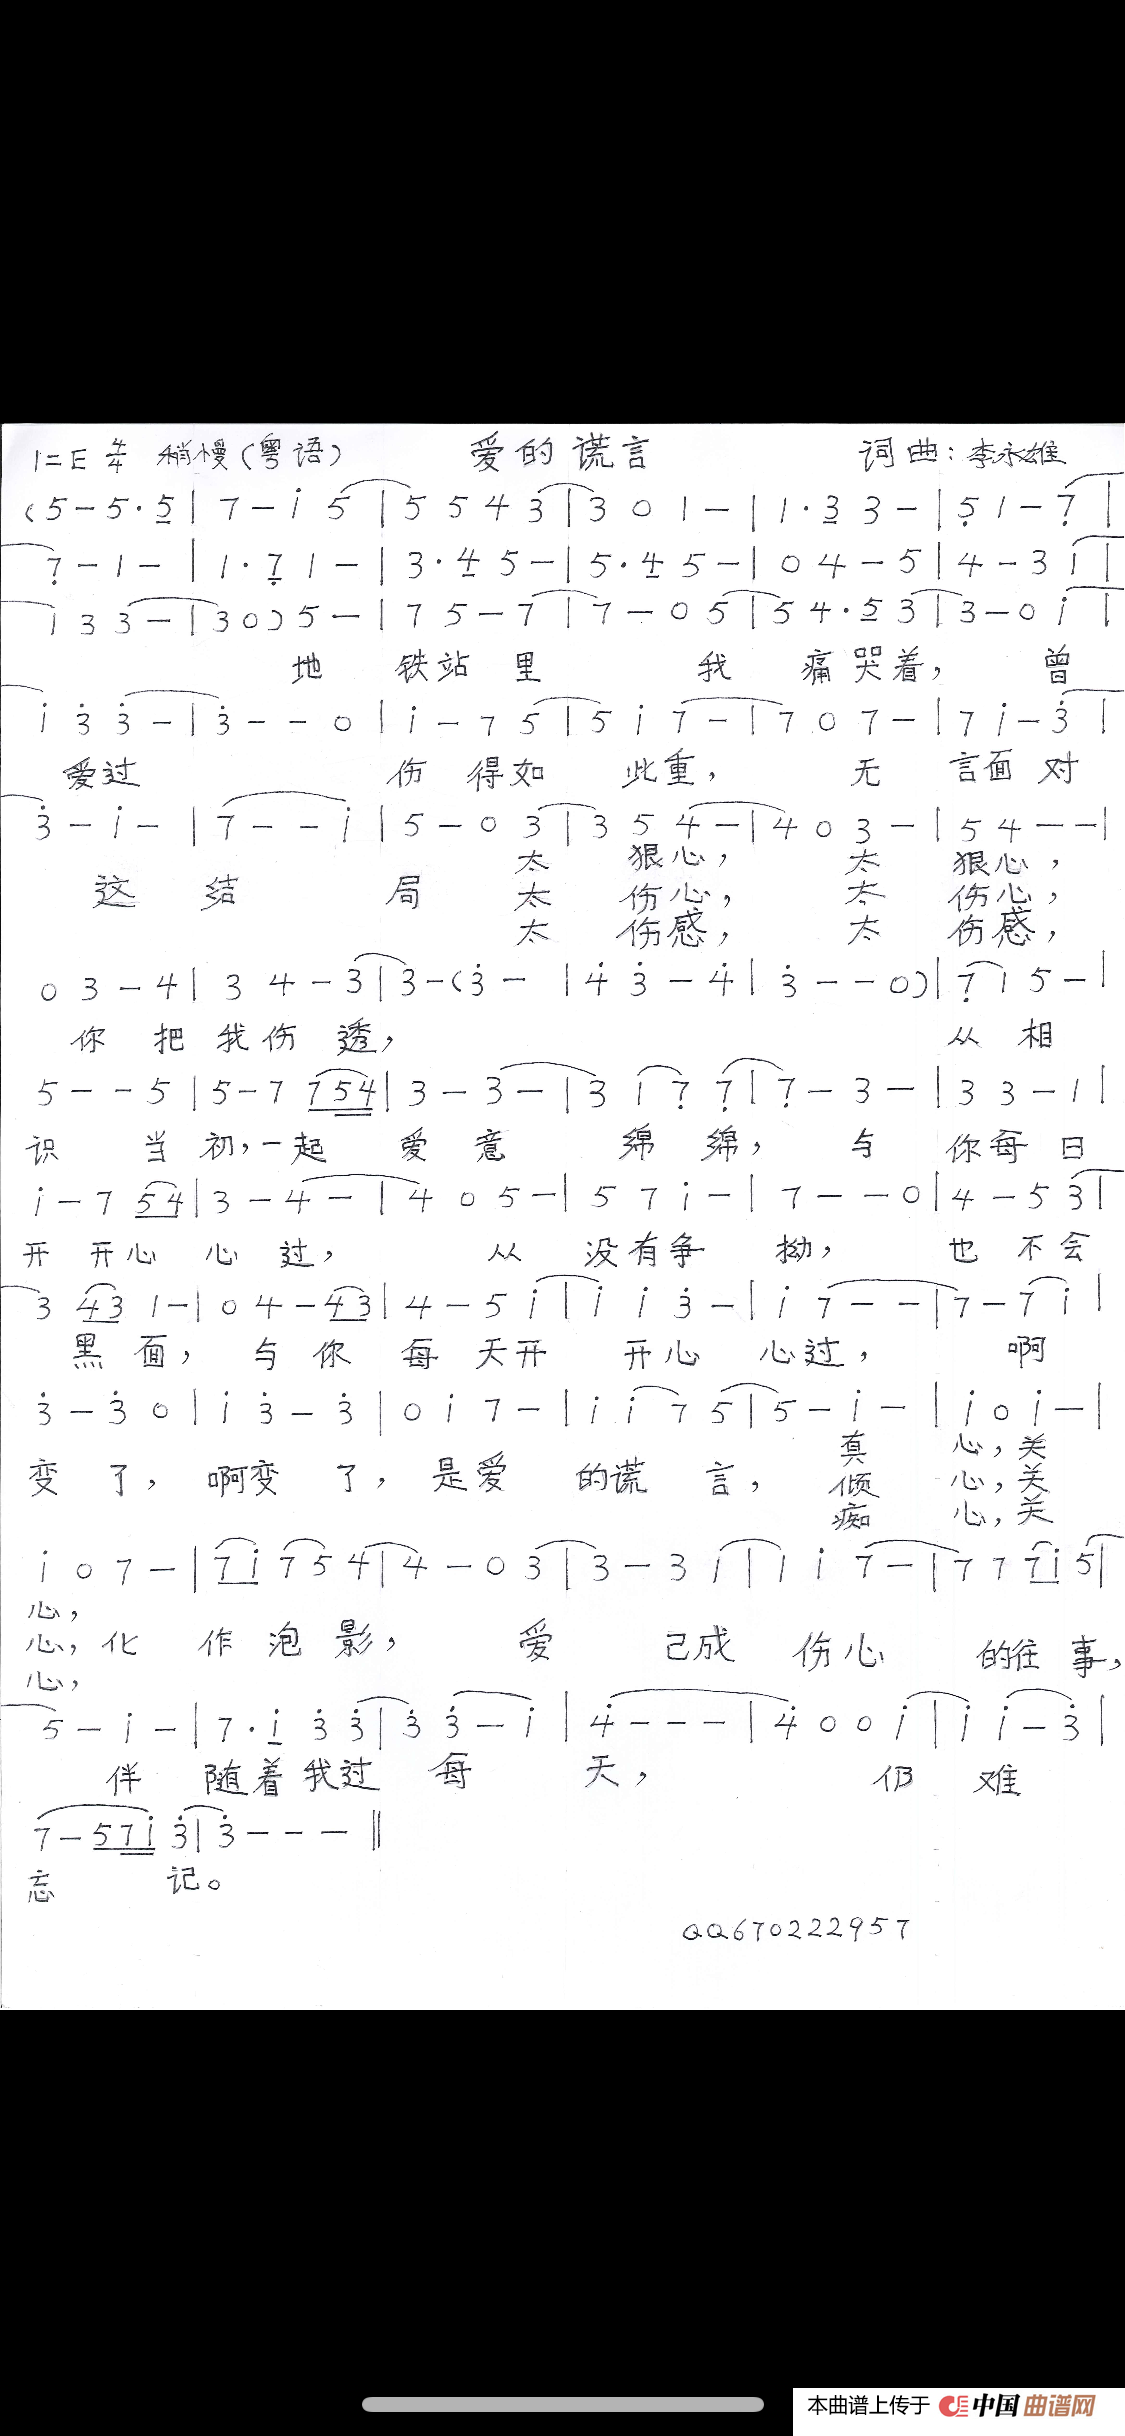 1=E 4/4 稍慢(粤语) 爱的谎言 词曲:李永雄
(5-5·5|7-i5|5543|301-|1·33-|51-7|
7-1-|1·71-|3·45-|5·45-|04-5|4-3i|
i33-|30)5-|75-7|7-05|54·53|3-0i|
地 铁站 里 我 痛哭着, 曾
i33-|3--0|i-75|5i7-|707-|7i-3|
爱过 伤 得如 此重, 无 言面 对
3-i-|7--i|5-03|354-|403-|54--|
太 狠心, 太 狠心,
这 结 局 太 伤心, 太 伤心,
太 伤感, 太 伤感,
03-4|34-3|3-(3-|43-4|3--0)|715-|
你 把 我伤 透, 从 相
5--5|5-7754|3-3-|3177|7-3-|33-1|
识 当 初,一起 爱 意 绵 绵, 与 你每 日
i-754|3-4-|405-|57i-|7--0|4-53|
开 开心 心 过, 从 没有争 拗, 也 不会
3431-|04-43|4-5i|ii3-|i7--|7-7i|
黑 面, 与 你 每 天开 开心 心过, 啊
3-30|i3-3|0i7-|ii75|5-i-|i0i-|
真 心,关
变 了, 啊变 了, 是爱 的谎 言, 倾 心,关
痴 心,关
i07-|7i754|4-03|3-31|1i7-|777i5|
心,
心,化 作 泡 影, 爱 已成 伤心 的往 事,
心,
5-i-|7·i33|33-i|4---|400i|ii-3|
伴 随着 我过 每 天, 仍 难
7-57i3|3---‖
忘 记。
QQ670222957
本曲谱上传于 中国曲谱网